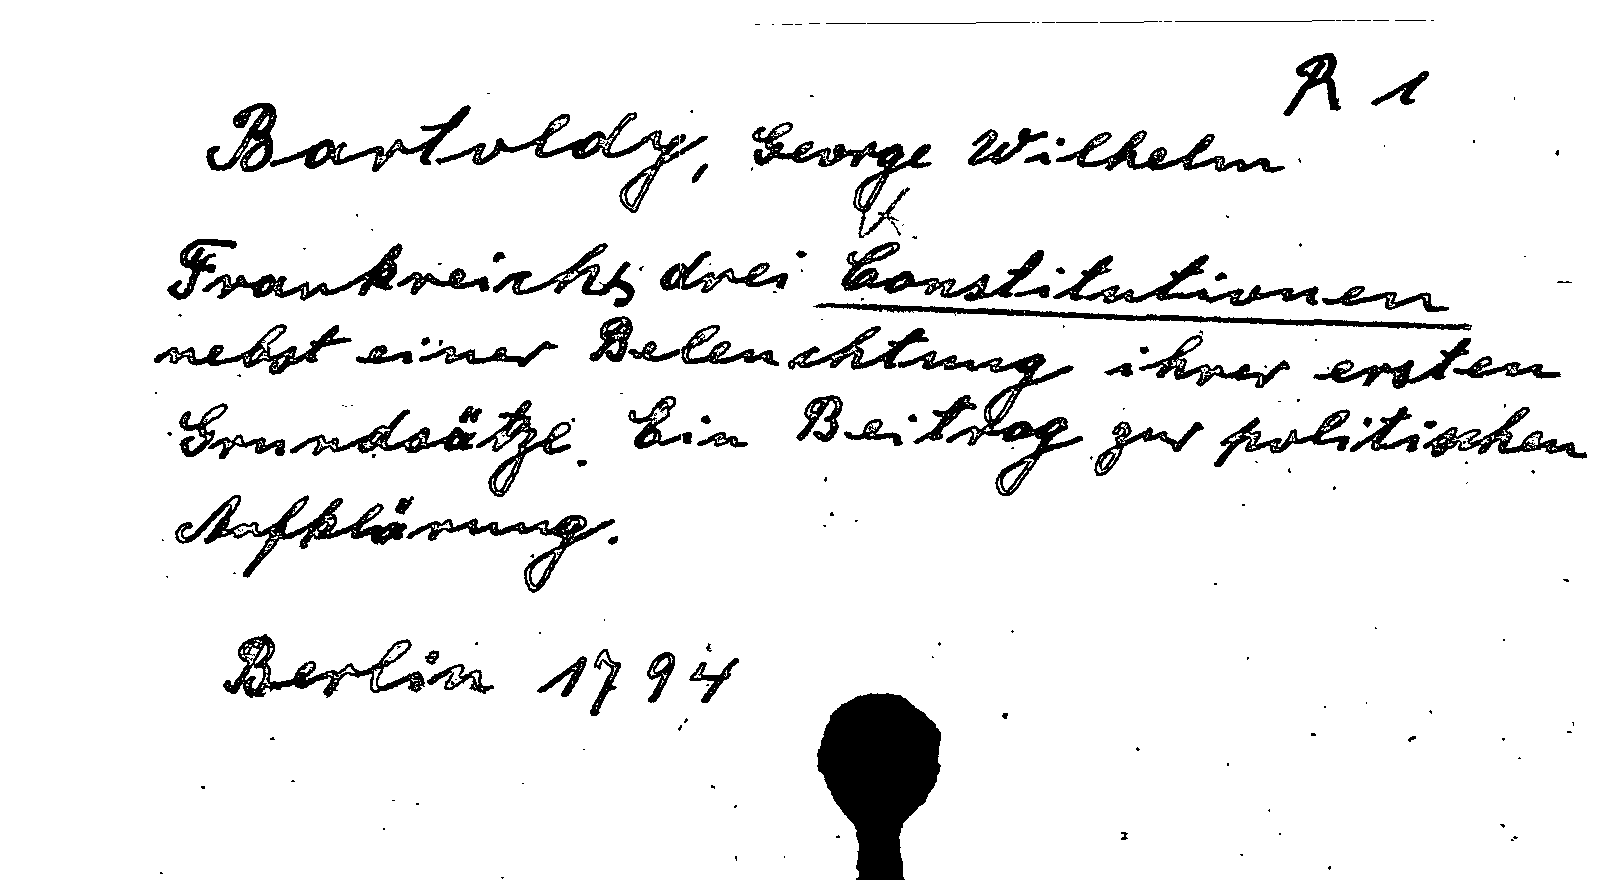 R 1
Bartoldy, George Wilhelm
Frankreichs drei Constitutionen
nebst einer Beleuchtung ihrer ersten
Grundsätze. Ein Beitrag zur politischen
Aufklärung.
Berlin 1794